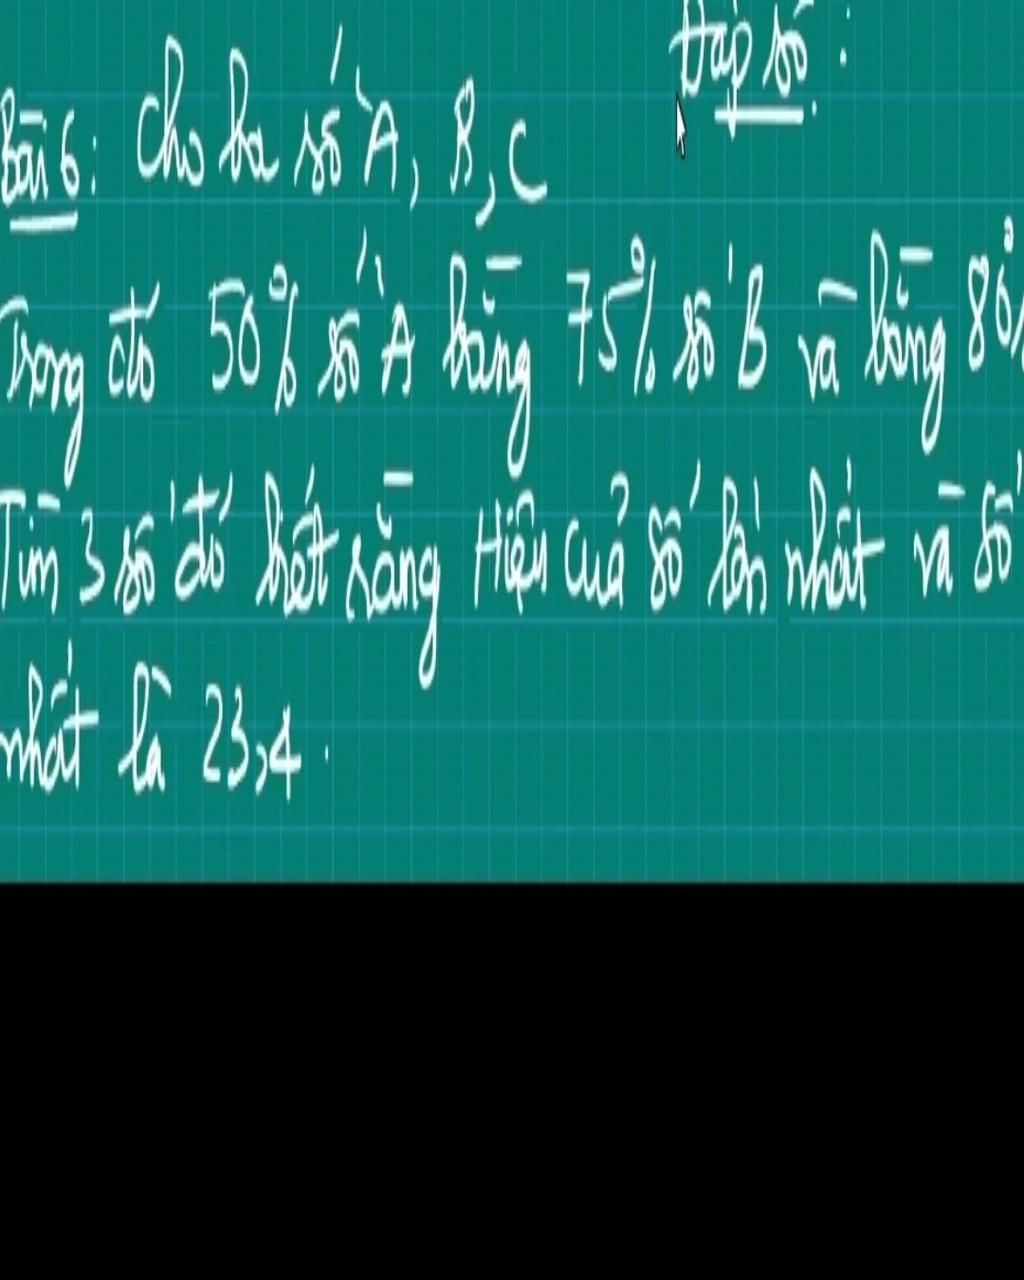 Đáp số :
Bài 6: Cho ba số A, B, C
Trong đó 50% số A bằng 75% số B và bằng 80%
Tìm 3 số đó biết rằng Hiệu của số lớn nhất và số
nhất là 23,4.